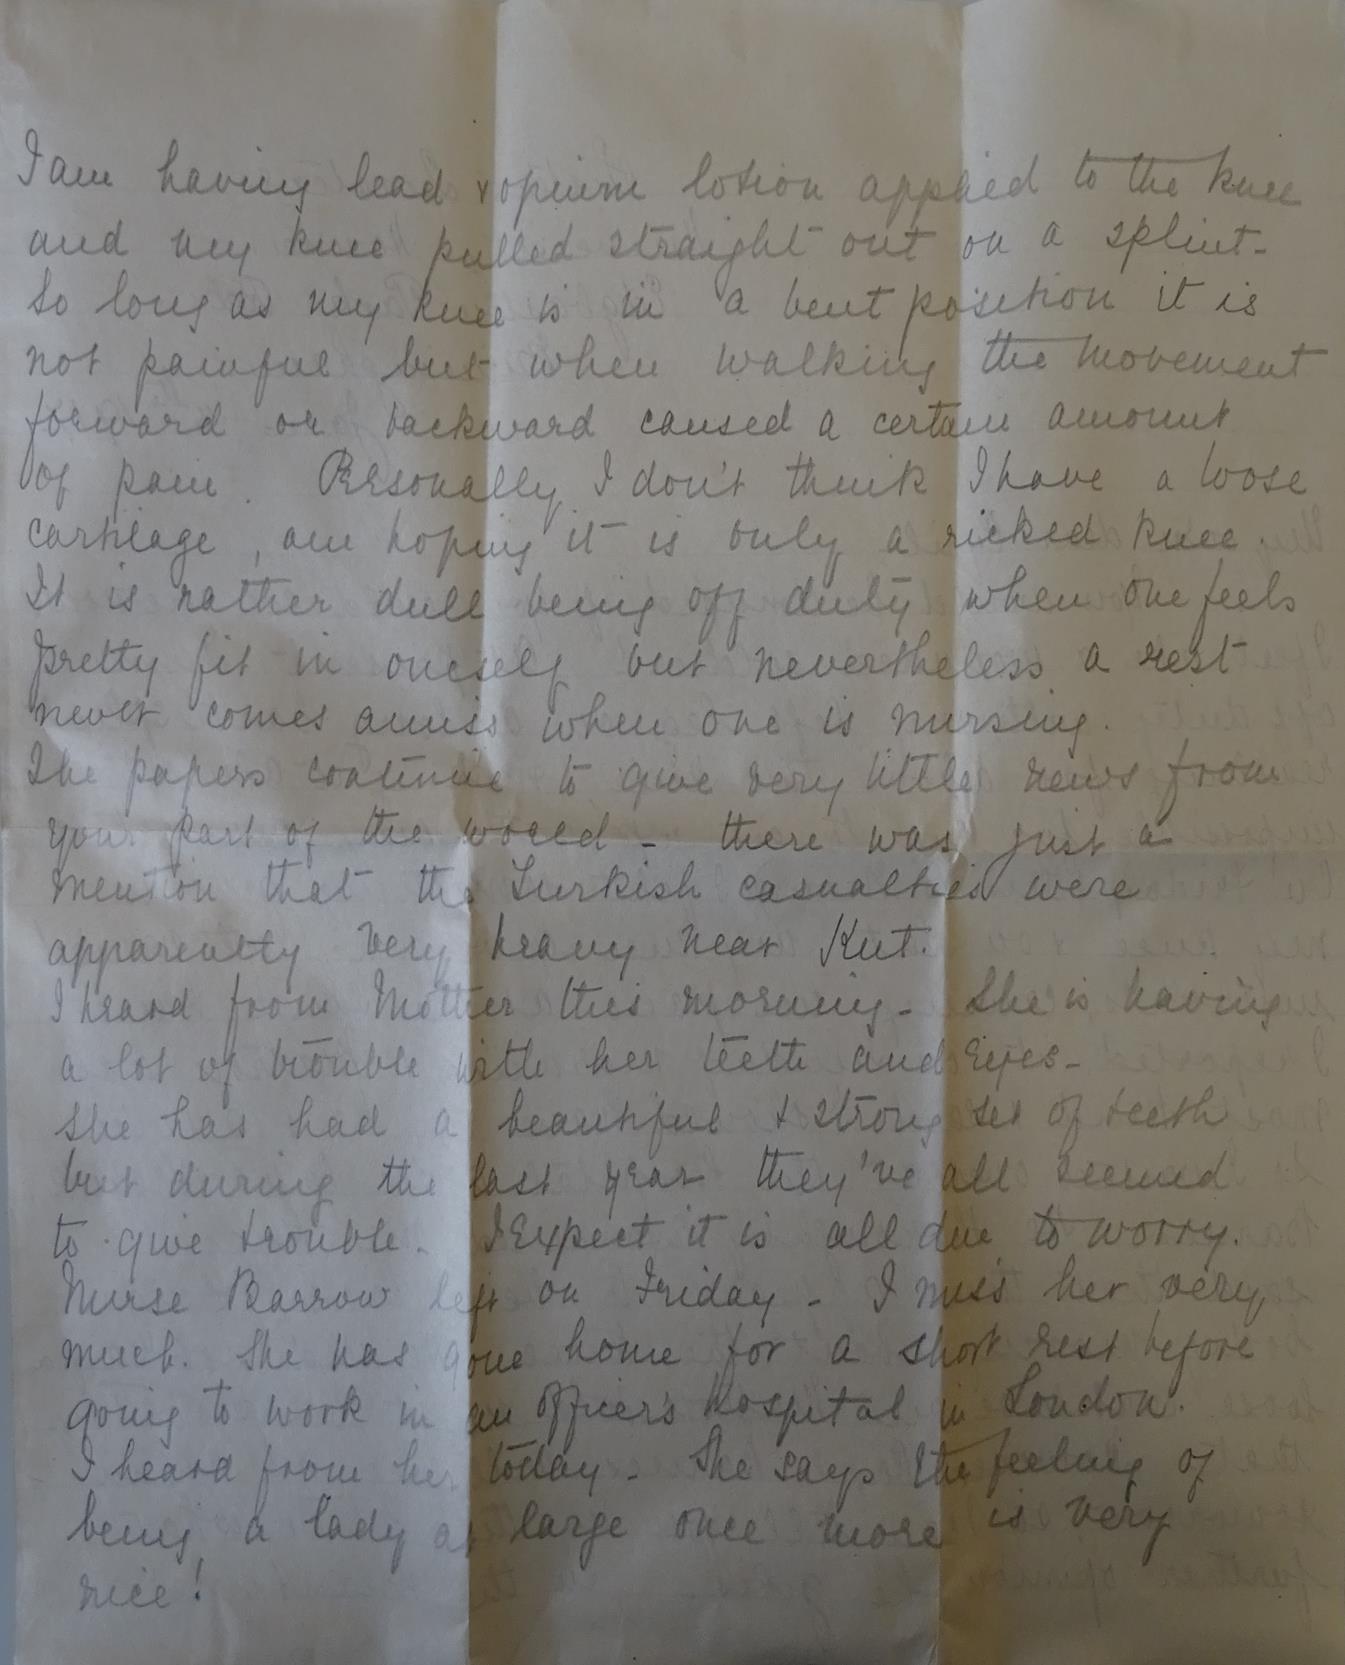 I am having lead & opium lotion applied to the knee
and my knee pulled straight out on a splint -
So long as my knee is in a bent position it is
not painful but when walking the movement
forward or backward caused a certain amount
of pain. Personally I don't think I have a loose
cartilage, am hoping it is only a ricked knee.
It is rather dull being off duty when one feels
pretty fit in oneself but nevertheless a rest
never comes amiss when one is nursing.
The papers continue to give very little news from
your part of the world - there was just a
mention that the Turkish casualties were
apparently very heavy near Kut.
I heard from Mother this morning - She is having
a lot of trouble with her teeth and eyes -
She has had a beautiful & strong set of teeth
but during the last year they've all seemed
to give trouble - I expect it is all due to worry.
Nurse Barrow left on Friday - I miss her very
much. She has gone home for a short rest before
going to work in an officer's hospital in London.
I heard from her today - She says the feeling of
being a lady at large once more is very
nice!